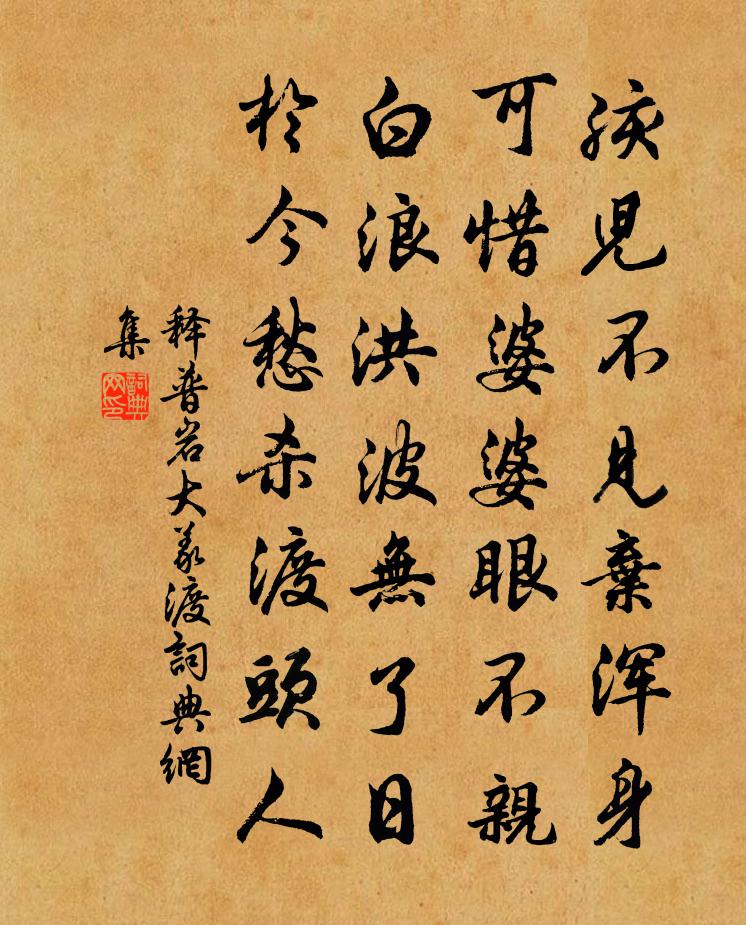 孩児不見棄渾身
可惜婆婆眼不親
白浪洪波無了日
於今愁杀渡頭人
释普岩大義渡詞典網
集
詞典網印